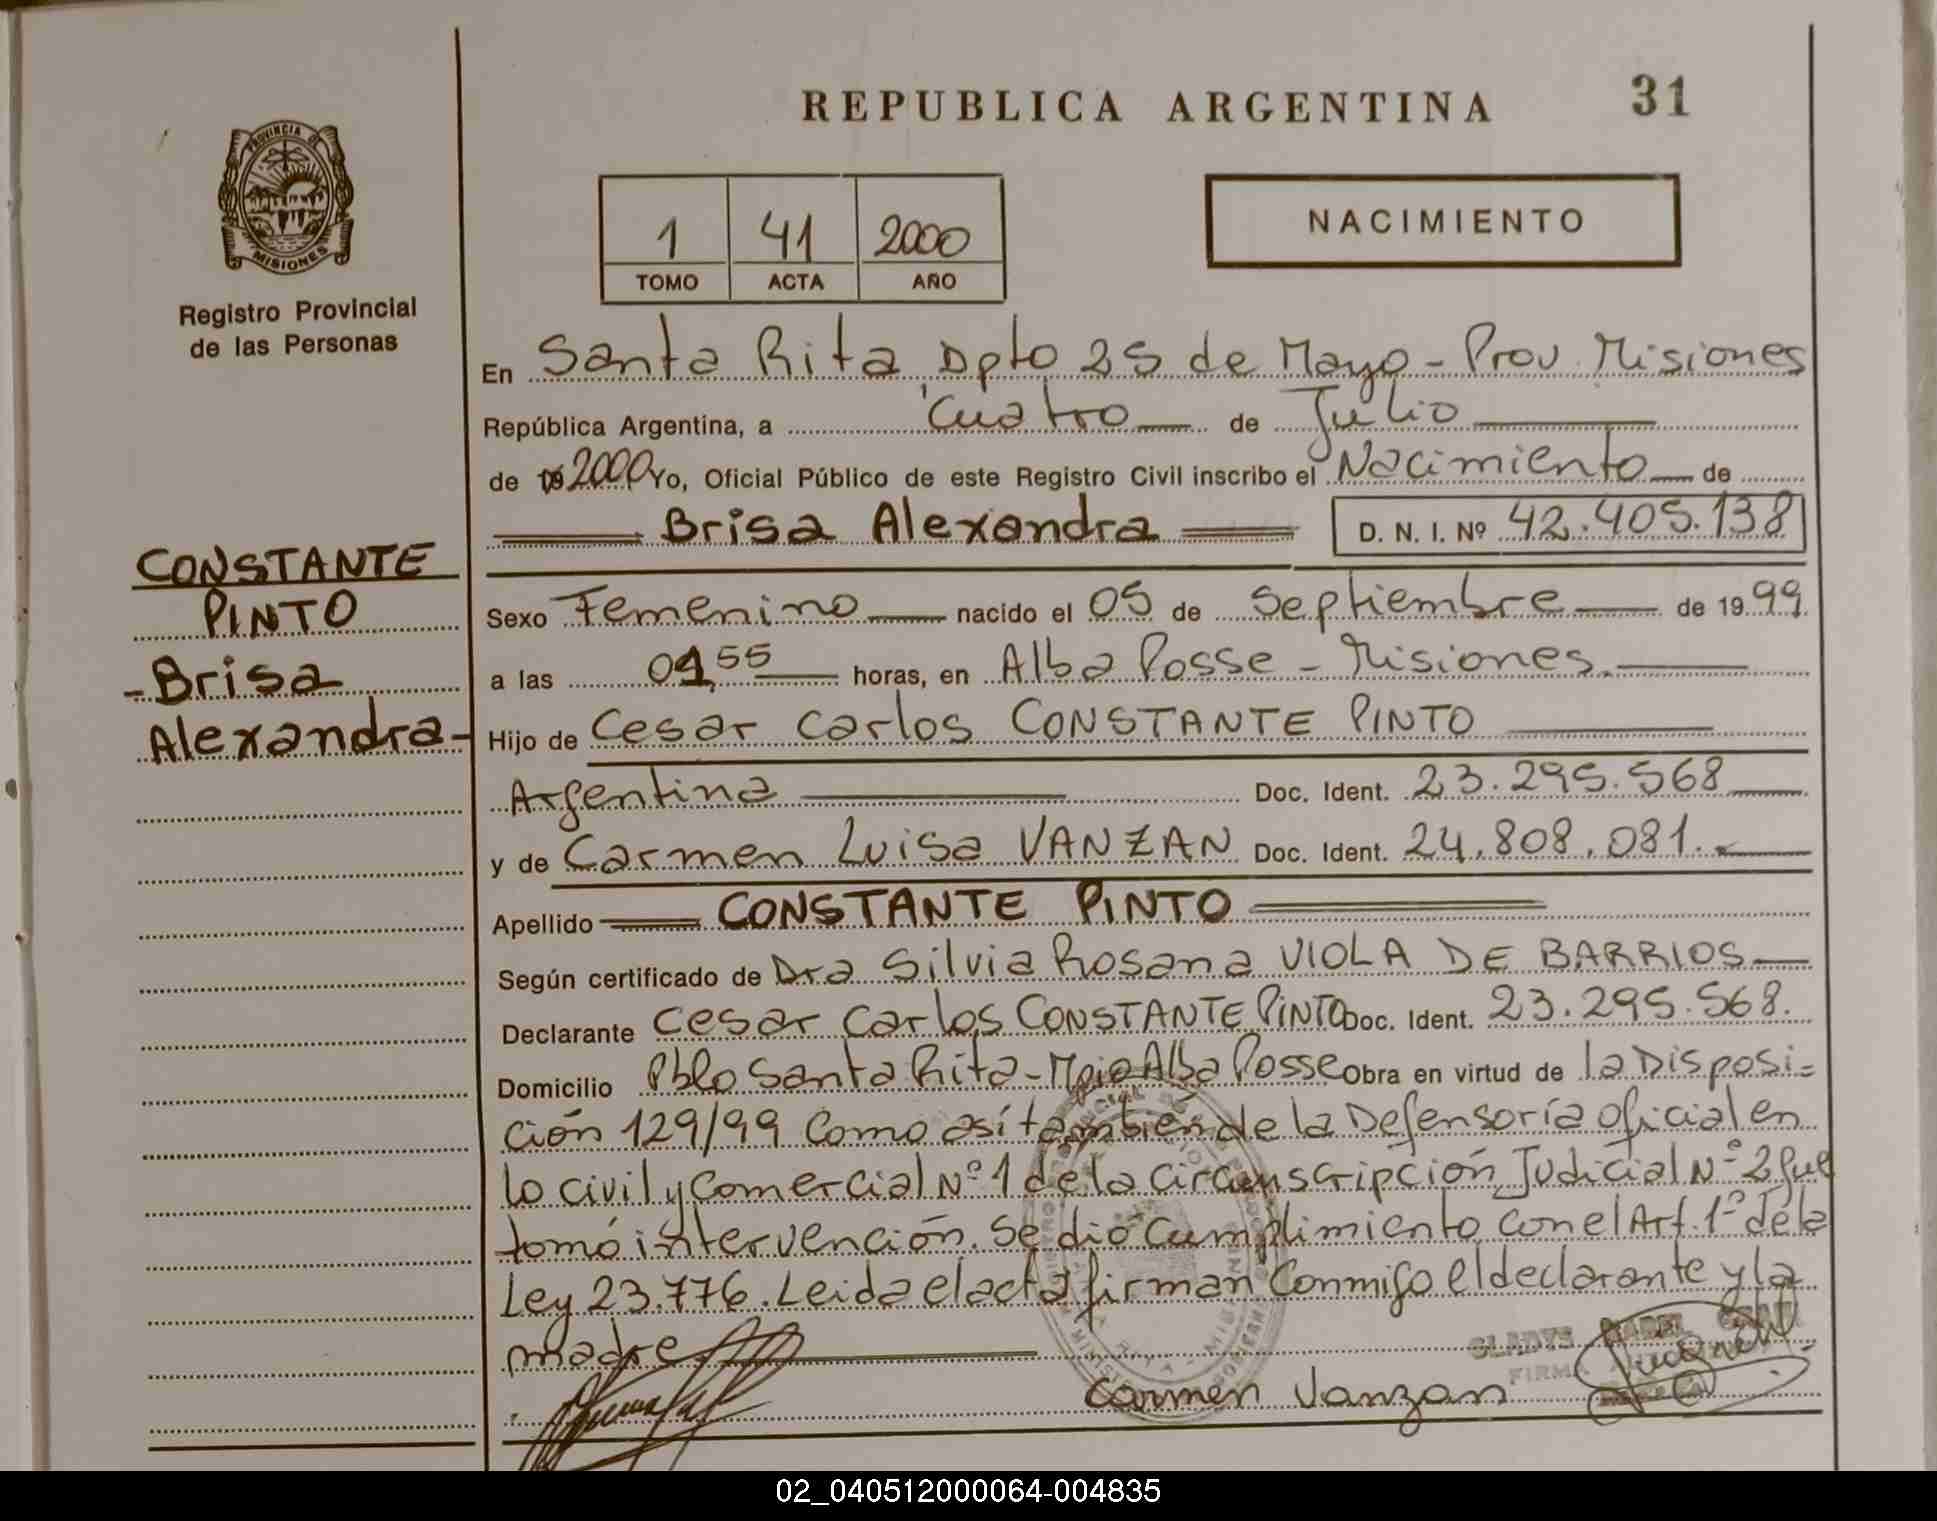 REPUBLICA ARGENTINA
31
PROVINCIA DE
MISIONES
Registro Provincial
de las Personas
1 41 2000
TOMO ACTA AÑO
NACIMIENTO
En Santa Rita Dpto 25 de Mayo - Prov Misiones
República Argentina, a Cuatro de Julio
de 2000 Yo, Oficial Público de este Registro Civil inscribo el Nacimiento de
Brisa Alexandra D. N. I. Nº 42.405.138
CONSTANTE
PINTO
- Brisa
Alexandra -
Sexo Femenino nacido el 05 de Septiembre de 1999
a las 55 horas, en Alba Posse - Misiones.
Hijo de Cesar Carlos CONSTANTE PINTO
Argentina Doc. Ident. 23.295.568
y de Carmen Luisa VANZAN Doc. Ident. 24.808.081.
Apellido CONSTANTE PINTO
Según certificado de Dra Silvia Rosana VIOLA DE BARRIOS
Declarante Cesar Carlos CONSTANTE PINTO Doc. Ident. 23.295.568.
Domicilio Pblo Santa Rita - Mpio Alba Posse Obra en virtud de la Disposi-
ción 129/99 Como así también de la Defensoría oficial en
lo civil y Comercial Nº 1 de la Circunscripción Judicial Nº 2 que
tomó intervención. Se dió Cumplimiento con el Art. 1º de la
Ley 23.776. Leida el acta firman Conmigo el declarante y la
madre
GLADYS
FIRMA
Carmen Vanzan
02_040512000064-004835